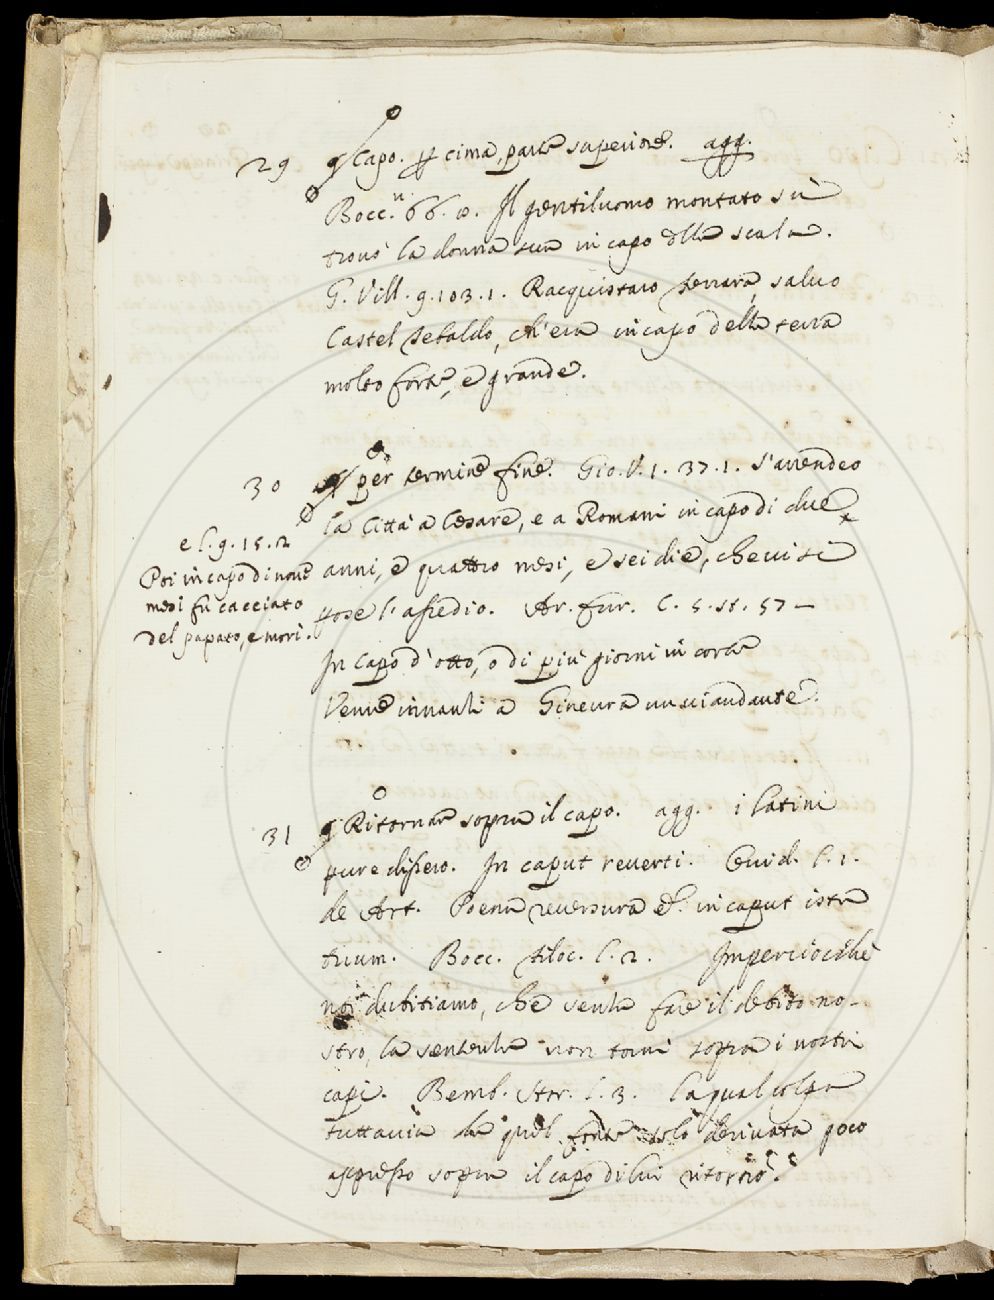 29 Capo. per cima, parte superiore. agg.
Bocc. n. 66. 10. Il gentiluomo montato sù
trovò la donna sua in capo della scala.
G. Vill. 9. 103. 1. Racquistaro Ferrara, salvo
Castel Tebaldo, ch'era in capo della terra
molto forte, e grande.
30 per termine fine. Gio. V. 1. 37. 1. S'arrendeo
la Città a Cesare, e a Romani in capo di due
anni, e quattro mesi, e sei die, che vi si
pose l'assedio. Ar. Fur. C. 5. st. 57 —
In capo d'otto, o di più giorni in corte
Venne innanzi a Ginevra un viandante.
e l. 9. 15. 2
Poi in capo di nove
mesi fu cacciato
del papato, e morì.
31 Ritornare sopra il capo. agg. i Latini
pure dissero. In caput reverti. Ovid. l. 1.
de Art. Poena reversura est in caput ista
tuum. Bocc. filoc. l. 2. Imperciocchè
noi dubitiamo, che senza fare il debito no-
stro, la sentenza non torni sopra i nostri
capi. Bemb. Stor. l. 3. La qual colpa
tuttavia da quel fonte solo derivata poco
appresso sopra il capo di lui ritornò.